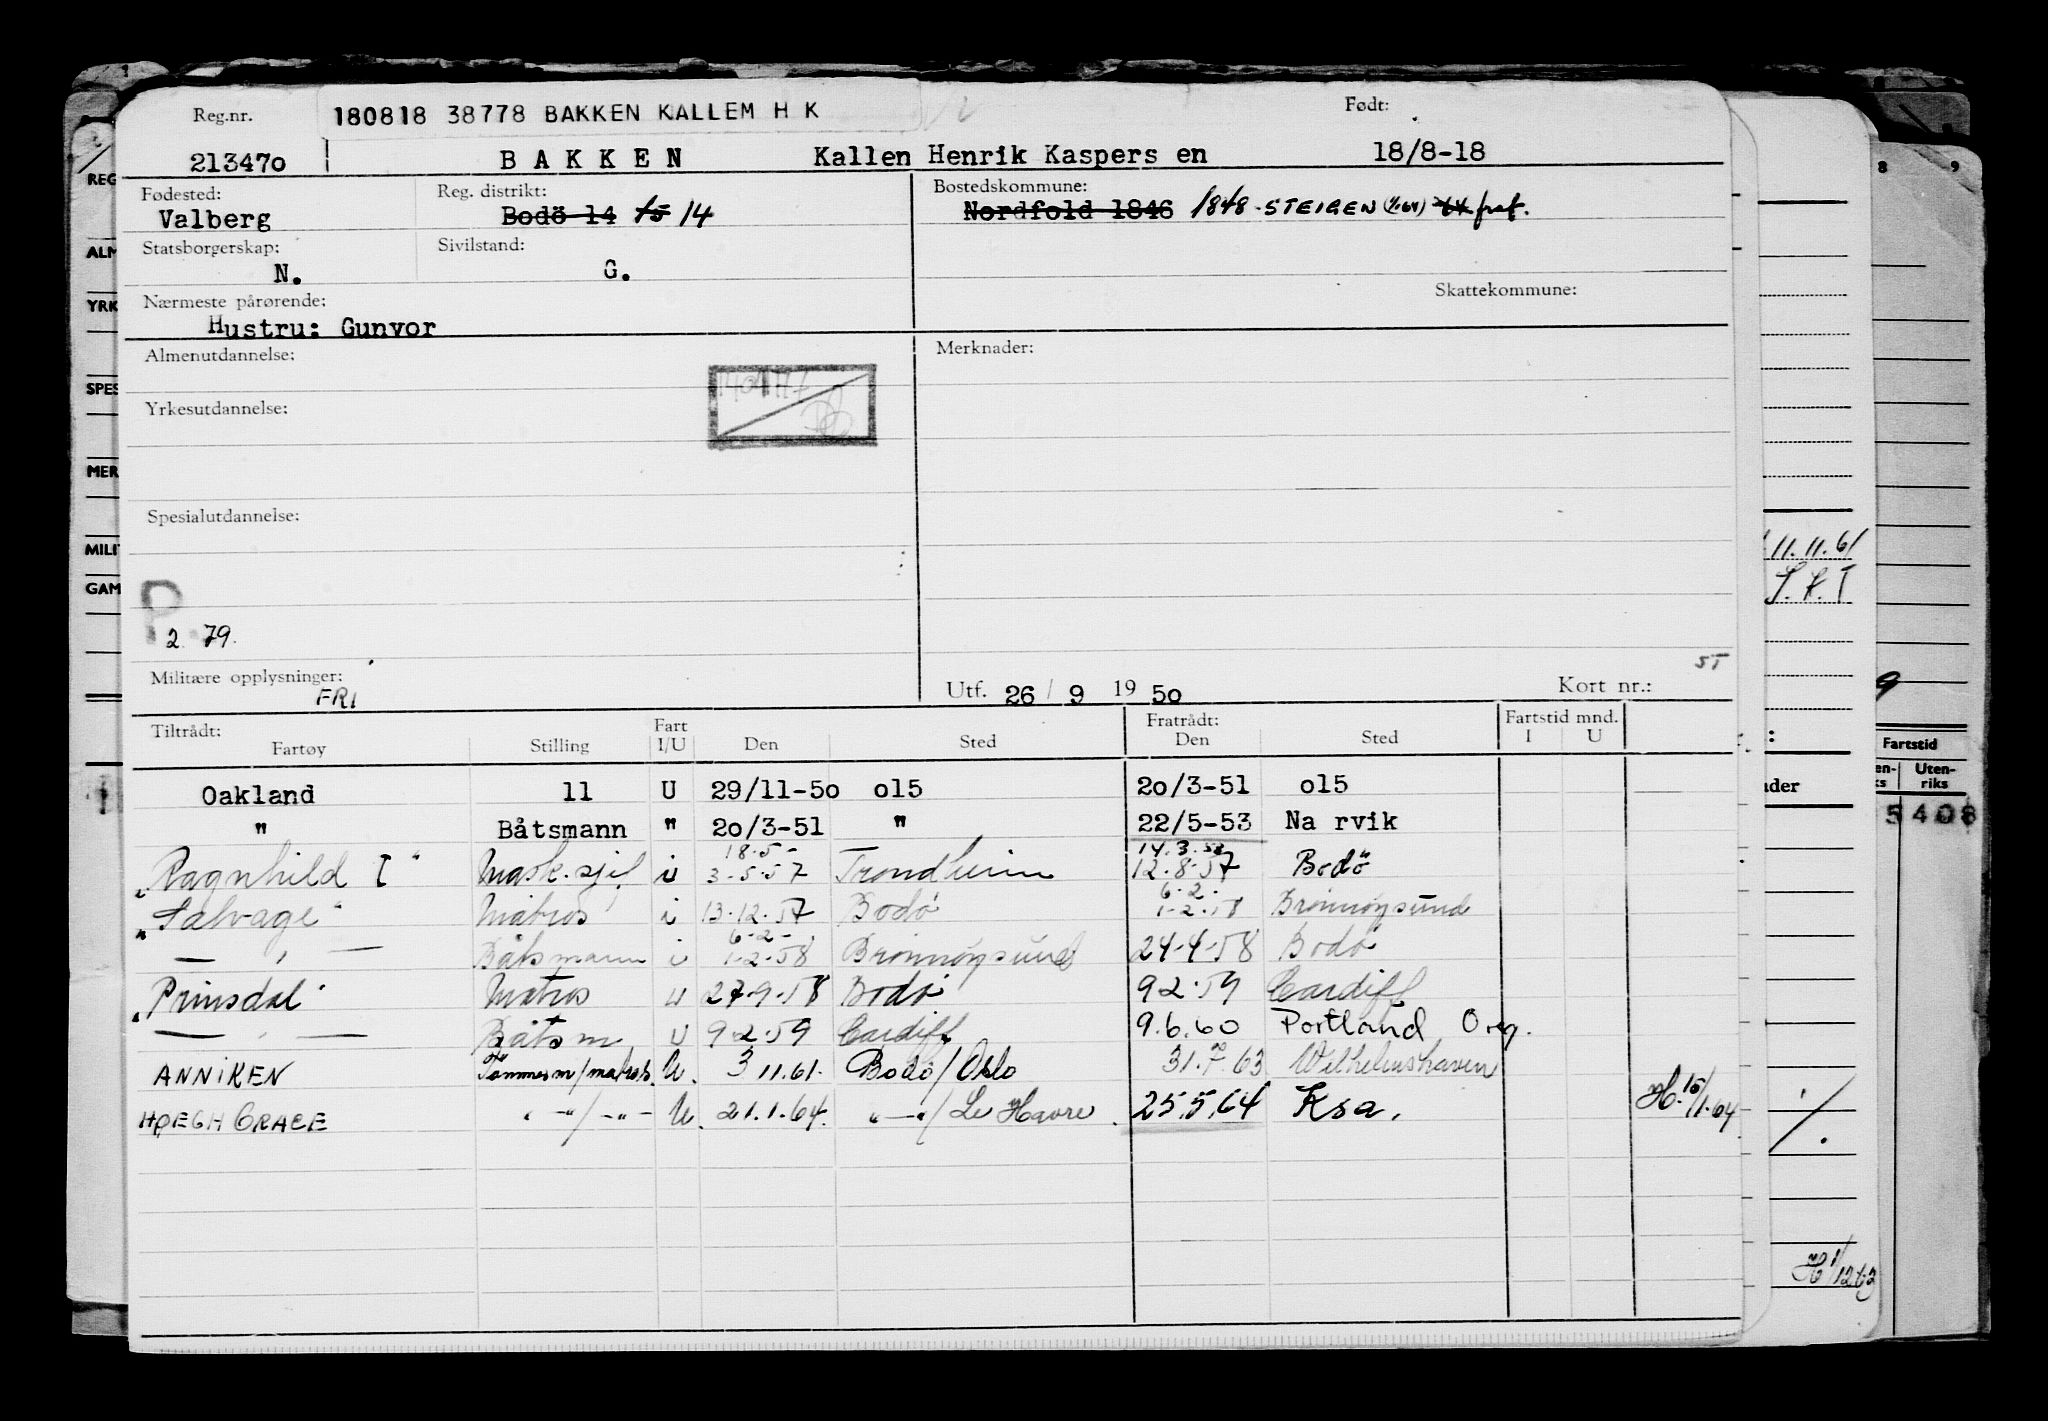 Reg.nr. 180818 38778 BAKKEN KALLEM H K Født:
213470 BAKKEN Kallen Henrik Kaspers en 18/8-18
Fødested: Reg. distrikt: Bostedskommune:
Valberg Bodö 14 15 14 Nordfold 1846 1848-STEIGEN (1.64)
Statsborgerskap: Sivilstand:
N. G.
Nærmeste pårørende: Skattekommune:
Hustru: Gunvor
Almenutdannelse: Merknader:
Yrkesutdannelse:
Spesialutdannelse:
2 79.
Militære opplysninger: FRI Utf. 26/9 1950 Kort nr.:
Tiltrådt: Fart Fratrådt: Fartstid mnd.
Fartøy Stilling I/U Den Sted Den Sted I U
Oakland 11 U 29/11-50 o15 20/3-51 o15
" Båtsmann " 20/3-51 " 22/5-53 Na rvik
18.5- 14.3.58
"Ragnhild I" Mask.sjef i 3-5-57 Trondheim 12-8-57 Bodö
6-2-
"Salvage" Matros i 13-12-57 Bodö 1-2-58 Brønnøysund
6-2-
— " — Båtsmann i 1-2-58 Brønnøysund 24-4-58 Bodö
"Prinsdal" Matros u 27-9-58 Bodö 9 2-59 Cardiff
— " — Båtsm u 9-2-59 Cardiff 9.6.60 Portland Oreg.
ANNIKEN Tömmerm/matros U. 3 11.61. Bodö/Oslo 31.7.63 Wilhelmshaven
HØEGH GRACE " -"-/-"- U. 21.1.64. "—"/Le Havre. 25.5.64 Ksa. H. 15/1.64
REG
ALM
YRK
SPES
MER
MILIT
GAM
8 9
11.11.61
S.K.T
9
Fartstid
Uten-
riks
5408
H 1/12 63